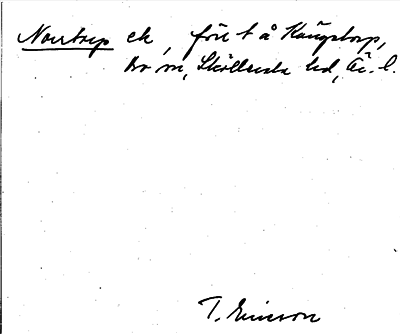 Norrtorp ek, förr t å Kängstorp,
Bo sn, Sköllersta hd, Nä. l.
T. Ericsson